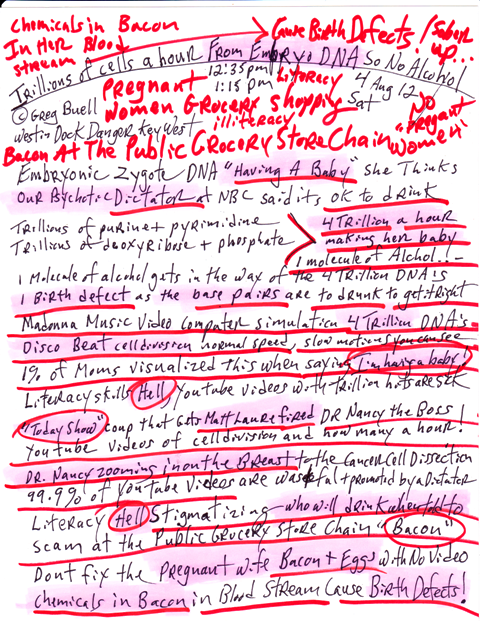 Chemicals in Bacon Cause Birth Defects! Sober up...
In Her Blood stream
Trillions of cells a hour From Embryo DNA So No Alcohol
12:35pm Literacy 4 Aug 12
Pregnant 1:15 pm Sat
© Greg Buell Women Grocery Shoppig No
Westin Dock Danger Key West illiteracy "Pregant
Bacon At The Public Grocery Store Chain Women"
Embryonic Zygote DNA "Having A Baby" she Thinks
Our Psychotic Dictator at NBC said its ok to drink
Trillions of purine + pyrimidine 4 Trillion a hour
Trillions of deoxyribose + phosphate making her baby
1 molecule of Alchol!
1 Molecule of alcohol gets in the way of the 4 Trillion DNA's
1 Birth defect as the base pairs are to drunk to get it right
Madonna Music Video computer simulation 4 Trillion DNA's
Disco Beat cell division normal speed, slow motion you can see
1% of Moms visualized this when saying I'm havig a baby!
Literacy skills Hell YouTube videos with trillion hits are sick
"Today Show" coup that gets Matt Laure fired DR Nancy the Boss!
YouTube videos of cell division and how many a hour!
DR. Nancy zooming in on the Breast to the Cancer Cell Dissection
99.9% of YouTube Videos are wasteful + promoted by a Dictator
Literacy Hell Stigmatizing who will drink when told to
scam at the Public Grocery Store Chain "Bacon"
Dont fix the Pregnant wife Bacon + Eggs with No Video
Chemicals in Bacon in Blood Stream Cause Birth Defects!